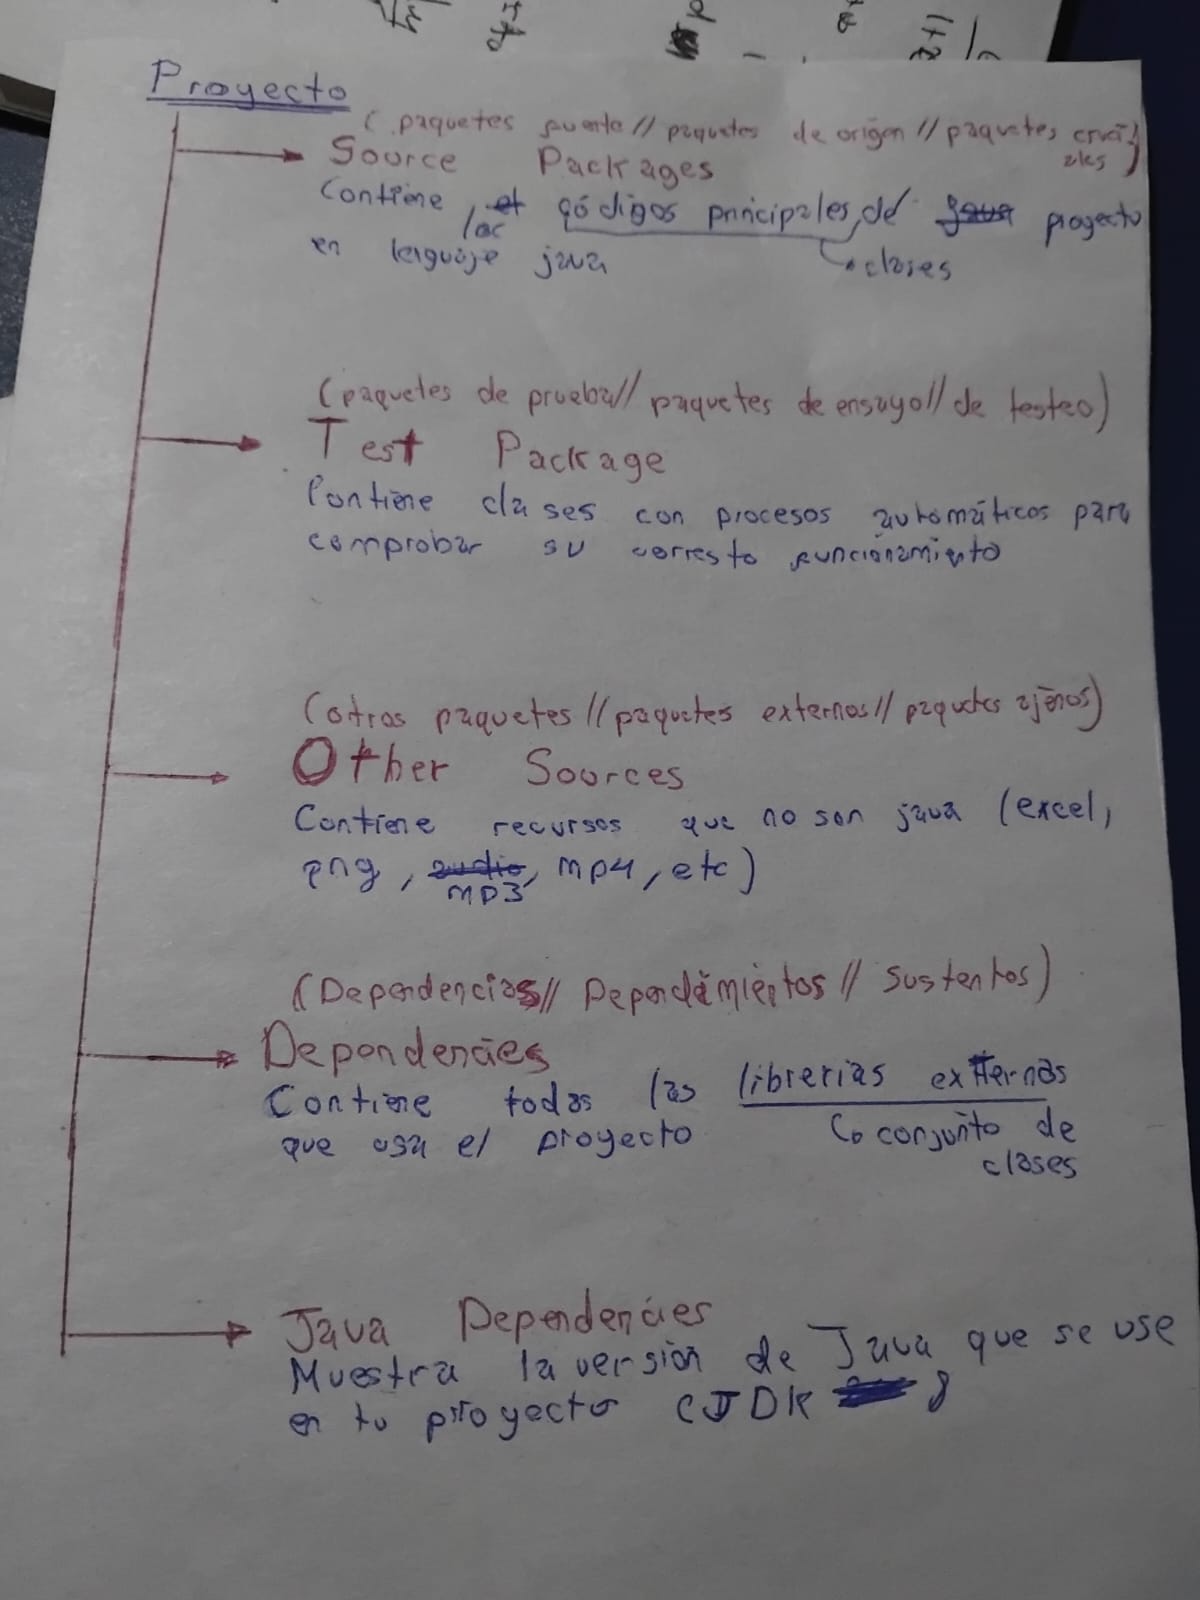 Proyecto
( paquetes fuente // paquetes de origen // paquetes cruciales)
Source Packages
Contiene los códigos principales de proyecto
en lenguaje java
clases
(paquetes de prueba // paquetes de ensayo // de testeo)
Test Package
Contiene clases con procesos automáticos para
comprobar su correcto funcionamiento
(otros paquetes // paquetes externos // paquetes ajenos)
Other Sources
Contiene recursos que no son java (excel,
png, audio, mp4, etc)
MP3
(Dependencias // Dependimientos // Sustentos)
Dependencies
Contiene todas las librerias externas
que usa el proyecto
conjunto de
clases
Java Dependencies
Muestra la versión de Java que se use
en tu proyecto (JDK 8